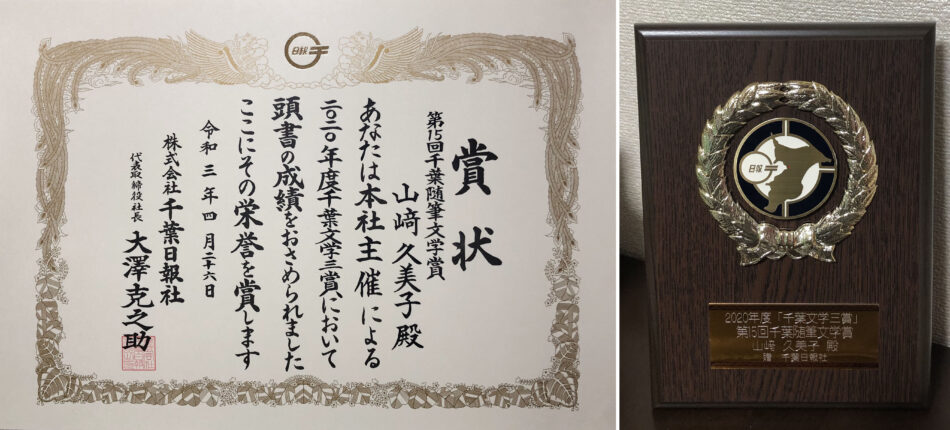 日報
賞状
第15回千葉随筆文学賞
山﨑久美子殿
あなたは本社主催による
二〇二〇年度千葉文学三賞において
頭書の成績をおさめられました
ここにその栄誉を賞します
令和三年四月二十六日
株式会社千葉日報社
代表取締役社長 大澤克之助
日報
2020年度「千葉文学三賞」
第15回千葉随筆文学賞
山﨑 久美子 殿
贈 千葉日報社